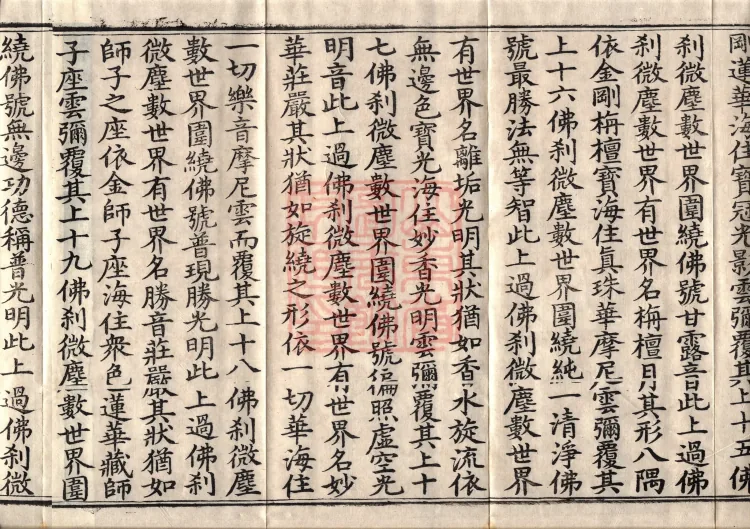 剛蓮華海住寶冠光影雲彌覆其上十五佛
刹微塵數世界圍繞佛號甘露音此上過佛
刹微塵數世界有世界名栴檀月其形八隅
依金剛栴檀寶海住眞珠華摩尼雲彌覆其
上十六佛刹微塵數世界圍繞純一清淨佛
號最勝法無等智此上過佛刹微塵數世界
有世界名離垢光明其狀猶如香水旋流依
無邊色寶光海住妙香光明雲彌覆其上十
七佛刹微塵數世界圍繞佛號徧照虛空光
明音此上過佛刹微塵數世界有世界名妙
華莊嚴其狀猶如旋繞之形依一切華海住
一切樂音摩尼雲而覆其上十八佛刹微塵
數世界圍繞佛號普現勝光明此上過佛刹
微塵數世界有世界名勝音莊嚴其狀猶如
師子之座依金師子座海住衆色蓮華藏師
子座雲彌覆其上十九佛刹微塵數世界圍
繞佛號無邊功德稱普光明此上過佛刹微